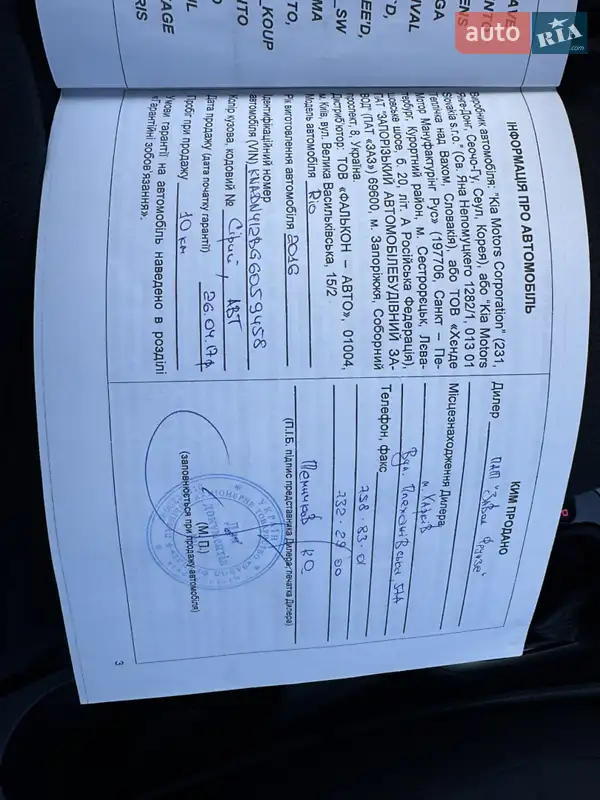 ІНФОРМАЦІЯ ПРО АВТОМОБІЛЬ
Виробник автомобіля: "Kia Motors Corporation" (231,
Янге-Донг, Сеочо-Гу, Сеул, Корея), або "Kia Motors
Slovakia s.r.o." (Св. Яна Непомучкего 1282/1, 013 01
Теплічка над Вахом, Словакія), або ТОВ «Хенде
Мотор Мануфактурінг Рус» (197706, Санкт – Пе-
тербург, Курортний район, м. Сестрорецьк, Лева-
шовське шосе, б. 20, літ. А Російська Федерація),
ПАТ "ЗАПОРІЗЬКИЙ АВТОМОБІЛЕБУДІВНИЙ ЗА-
ВОД" (ПАТ «ЗАЗ») 69600, м. Запоріжжя, Соборний
проспект, 8, Україна.
Дистриб'ютор: ТОВ «ФАЛЬКОН – АВТО», 01004,
м. Київ, вул. Велика Васильківська, 15/2.
Модель автомобіля Rio
Рік виготовлення автомобіля 2016
Ідентифікаційний номер
автомобіля (VIN) KNADN412BG6059458
Колір кузова, кодовий № Сірий, ABT
Дата продажу (дата початку гарантії) 26.04.17
Пробіг при продажу 10 км
Умови гарантії на автомобіль наведено в розділі
«Гарантійні зобов'язання».
КИМ ПРОДАНО
Дилер ПАТ "
Місцезнаходження Дилера
м. Харків
Вул. Плеханівська, 57А
Телефон, факс
758-83-01
732-29-00
(П.І.Б, підпис представника Дилера, печатка Дилера)
(М.П.)
(заповнюється при продажу автомобіля)
УКРАЇНА
3
auto RIA.com